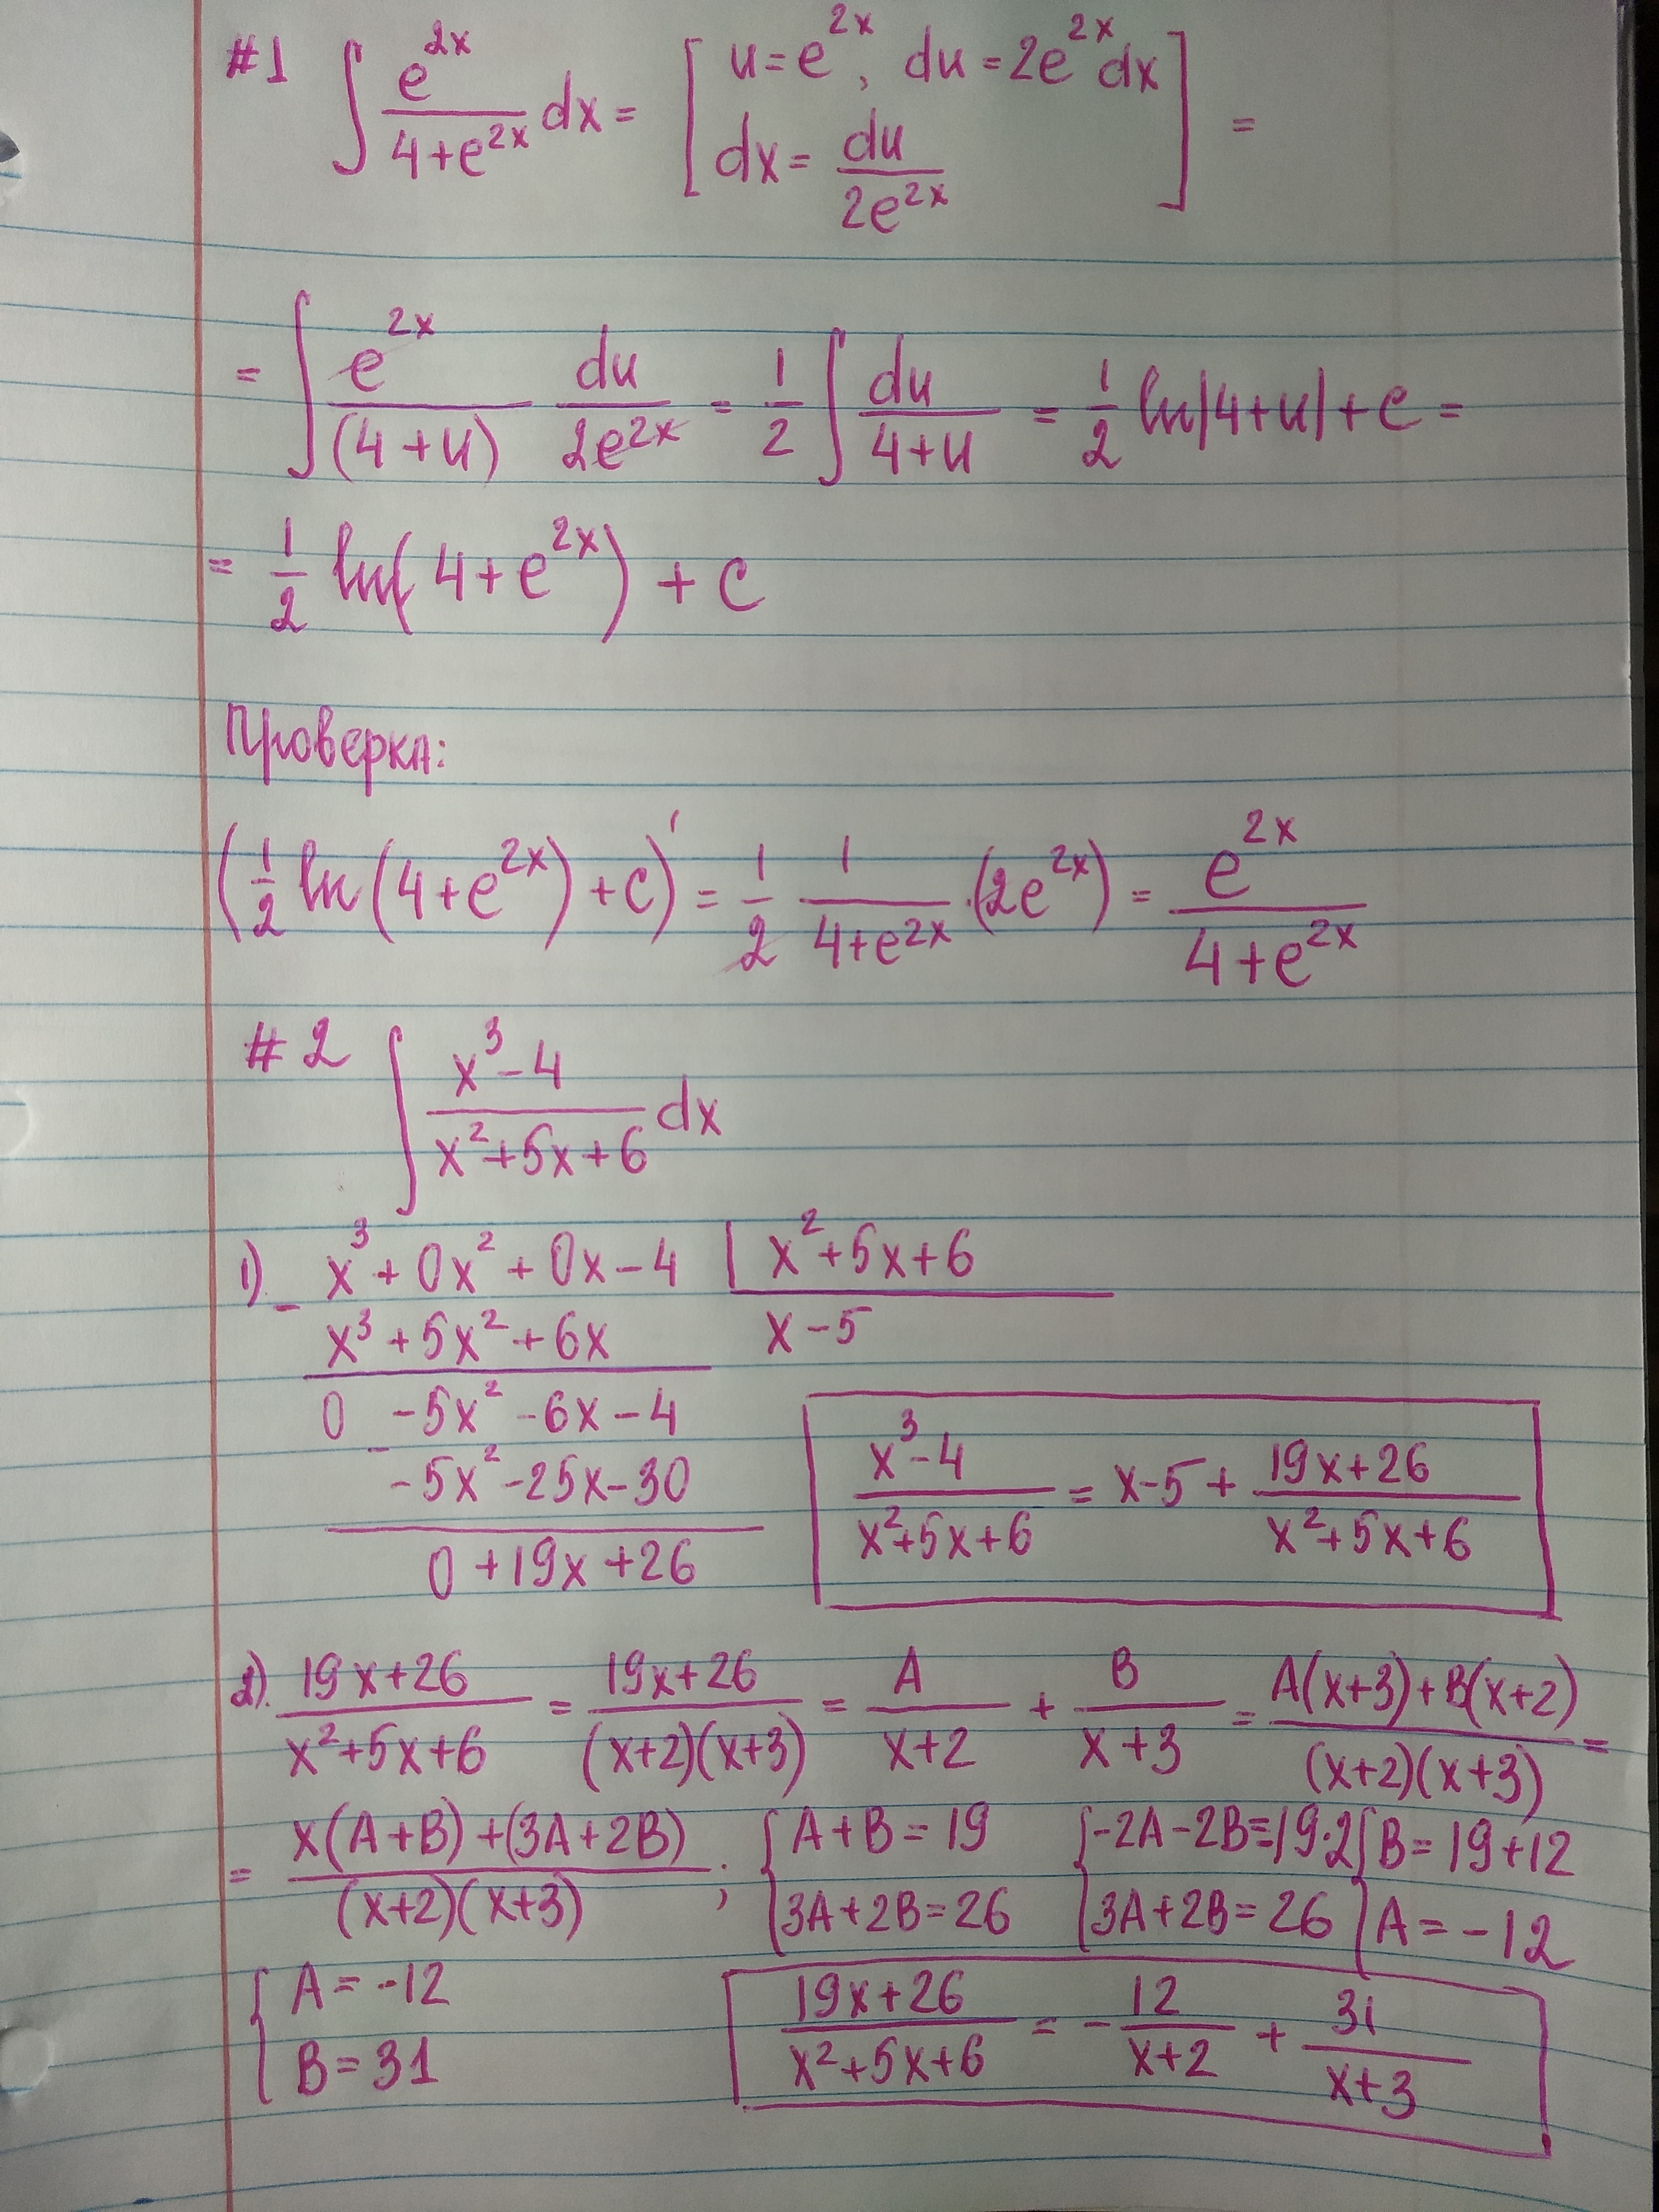 #1 ∫ e^{2x}/(4+e^{2x}) dx = [ u=e^{2x}, du=2e^{2x}dx
dx = du/(2e^{2x}) ] =
= ∫ e^{2x}/(4+u) du/(2e^{2x}) = 1/2 ∫ du/(4+u) = 1/2 ln|4+u|+c =
= 1/2 ln(4+e^{2x}) + c
Проверка:
(1/2 ln(4+e^{2x})+c)' = 1/2 1/(4+e^{2x}) · (2e^{2x}) = e^{2x}/(4+e^{2x})
#2 ∫ (x³-4)/(x²+5x+6) dx
1) - x³+0x²+0x-4 | x²+5x+6
x³+5x²+6x x-5
0 -5x²-6x-4
- -5x²-25x-30
0+19x+26
(x³-4)/(x²+5x+6) = x-5 + (19x+26)/(x²+5x+6)
2). (19x+26)/(x²+5x+6) = (19x+26)/((x+2)(x+3)) = A/(x+2) + B/(x+3) = (A(x+3)+B(x+2))/((x+2)(x+3)) =
= (x(A+B)+(3A+2B))/((x+2)(x+3)) ; { A+B=19 { -2A-2B=19·2 { B=19+12
3A+2B=26 3A+2B=26 A=-12
{ A=-12
B=31
(19x+26)/(x²+5x+6) = - 12/(x+2) + 31/(x+3)